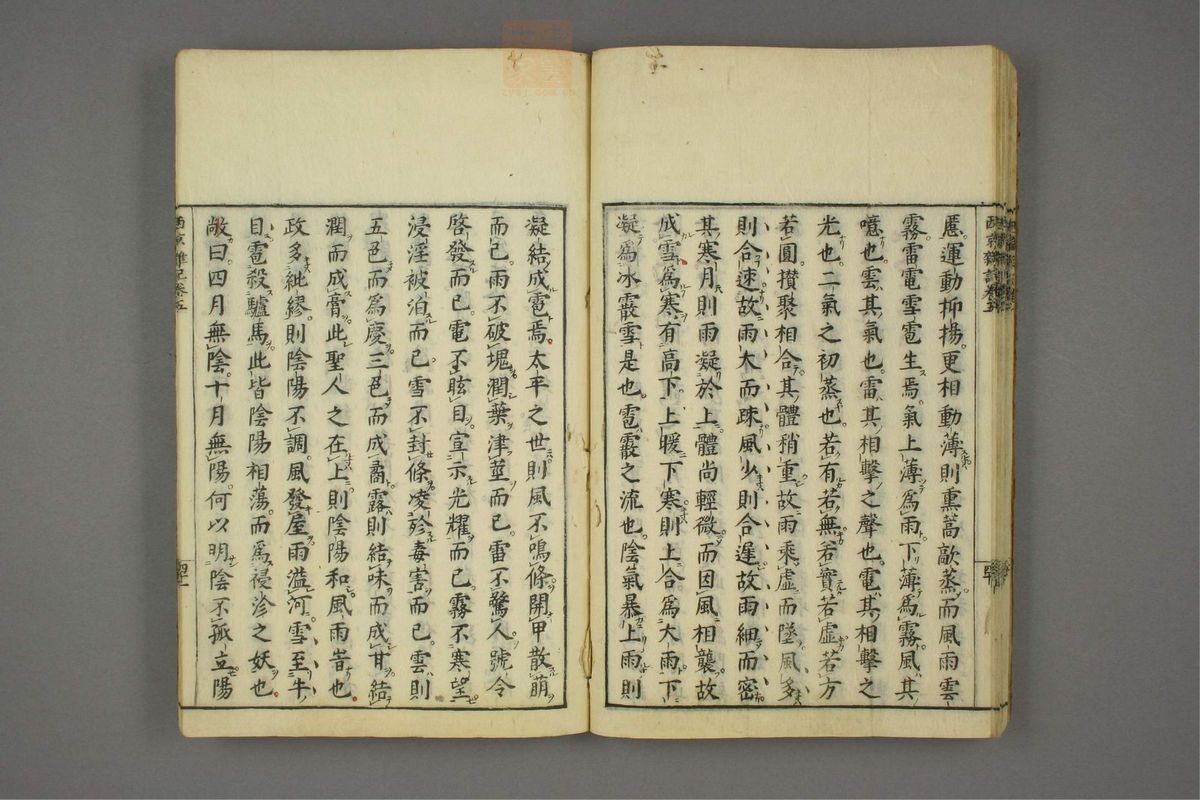 應運動抑揚更相動薄則熏蒿歊蒸而風雨雲
霧雷電雪雹生焉氣上薄爲雨下薄爲霧風其
噫也雲其氣也雷其相擊之聲也電其相擊之
光也二氣之初蒸也若有若無若實若虛若方
若圓攅聚相合其體稍重故雨乘虛而墜風多
則合速故雨大而疎風少則合遲故雨細而密
其寒月則雨凝於上體尚輕微而因風相襲故
成雪焉寒有高下上暖下寒則上合爲大雨下
凝爲冰霰雪是也雹霰之流也陰氣暴上雨則
凝結成雹焉太平之世則風不鳴條開甲散萌
而已雨不破塊潤葉津莖而已雷不驚人號令
啓發而已電不眩目宣示光耀而已霧不寒望
浸淫被泊而已雪不封條凌殄毒害而已雲則
五色而爲慶三色而成矞露則結味而成甘結
潤而成膏此聖人之在上則陰陽和風雨旹也
政多紕繆則陰陽不調風發屋雨溢河雪至牛
目雹殺驢馬此皆陰陽相蕩而爲祲沴之妖也
敞曰四月無陰十月無陽何以明陰不孤立陽
西京雜記卷五